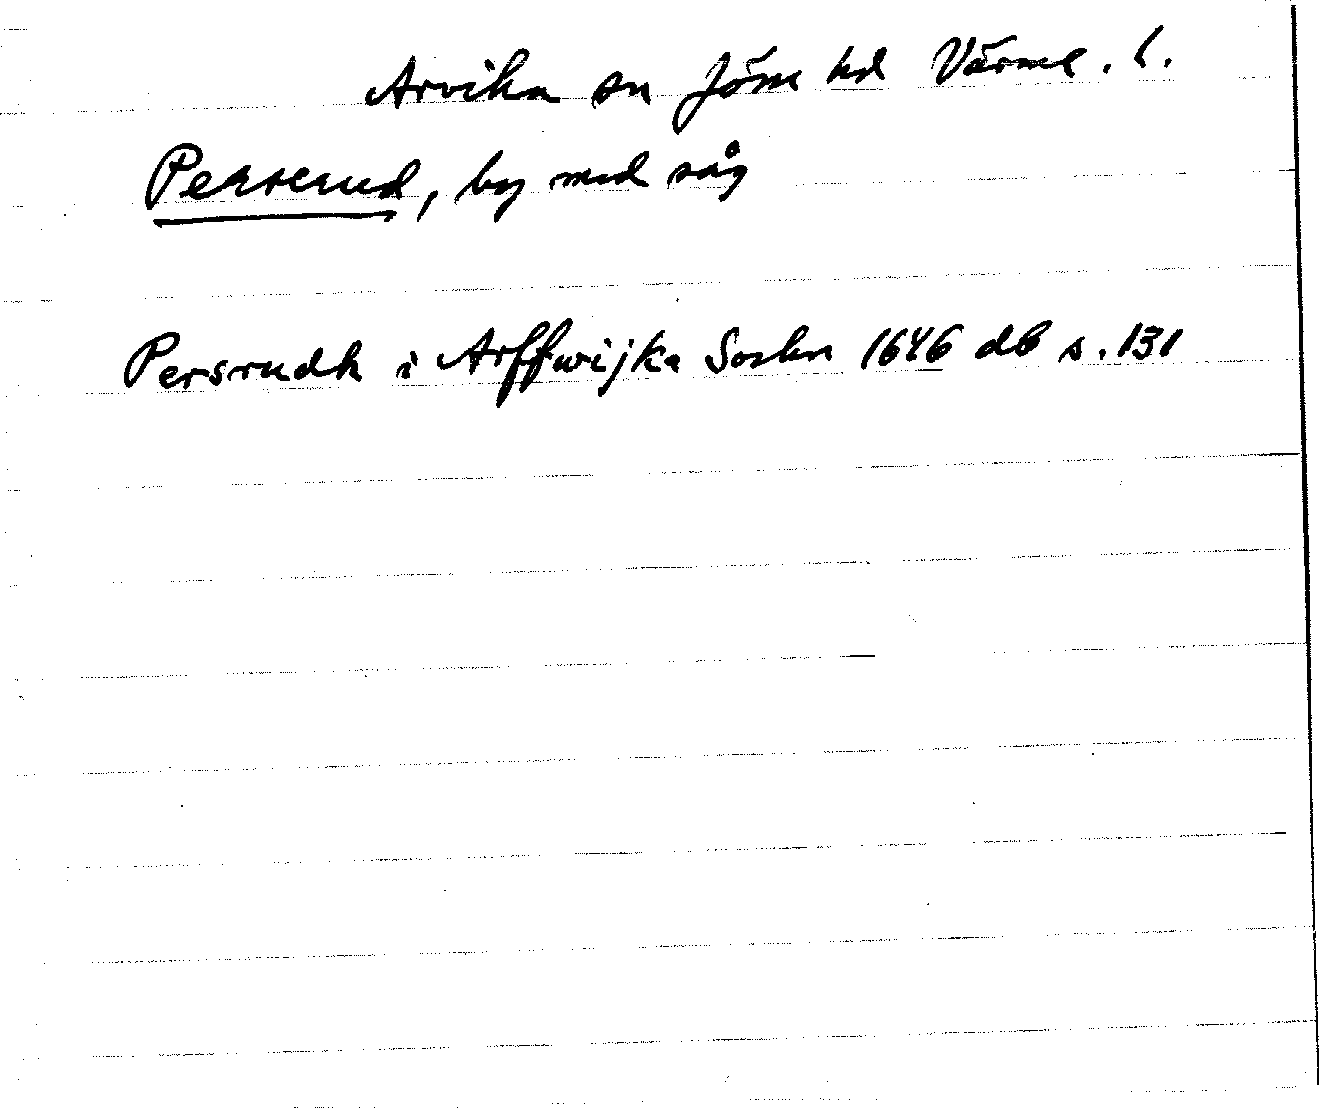 Arvika sn Jösse hd Värml. l.
Perserud, by med såg
Persrudh i Arffwijka Sochn 1646 db s. 131